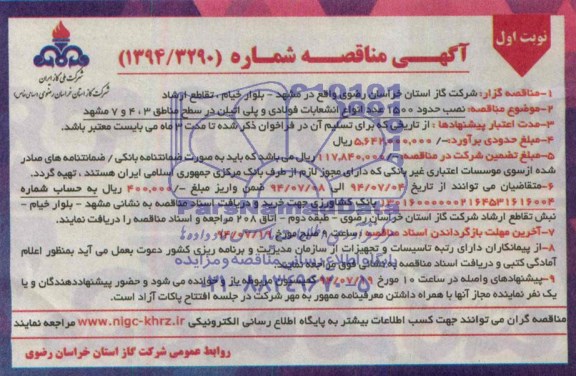 نوبت اول
آگهـی مناقصـه شماره (۱۳۹۴/۳۲۹۰)
شرکت ملی گاز ایران
شرکت گاز استان خراسان رضوی (سهامی خاص)
۱-مناقصه گزار: شرکت گاز استان خراسان رضوی واقع در مشهد - بلوار خیام ، تقاطع ارشاد
۲-موضوع مناقصه: نصب حدود ۲۵۰۰ عدد انواع انشعابات فولادی و پلی اتیلن در سطح مناطق ۳ ، ۴ و ۷ مشهد
۳-مدت اعتبار پیشنهادها : از تاریخی که برای تسلیم آن در فراخوان ذکر شده تا مدت ۳ ماه می بایست معتبر باشد.
۴-مبلغ حدودی برآورد: ریال
۵-مبلغ تضمین شرکت در مناقصه ریال می باشد که باید به صورت ضمانتنامه بانکی / ضمانتنامه های صادر
شده ازسوی موسسات اعتباری غیر بانکی که دارای مجوز لازم از طرف بانک مرکزی جمهوری اسلامی ایران هستند ، تهیه گردد.
۶-متقاضیان می توانند از تاریخ ۹۴/۰۷/۰۴ الی ۹۴/۰۷/۱۸ ضمن واریز مبلغ ۴۰۰,۰۰۰ ریال به حساب شماره
بانک کشاورزی جهت خرید و دریافت اسناد مناقصه به نشانی مشهد - بلوار خیام -
نبش تقاطع ارشاد شرکت گاز استان خراسان رضوی - طبقه دوم - اتاق ۲۰۸ مراجعه و اسناد مناقصه را دریافت نمایند.
۷-آخرین مهلت بازگرداندن اسناد مناقصه : ساعت ۹ صبح مورخ
۸-از پیمانکاران دارای رتبه تاسیسات و تجهیزات از سازمان مدیریت و برنامه ریزی کشور دعوت بعمل می آید بمنظور اعلام
آمادگی کتبی و دریافت اسناد مناقصه به نشانی فوق مراجعه نمایند.
۹-پیشنهادهای واصله در ساعت ۱۰ مورخ کمیسیون مربوطه باز و خوانده می شود و حضور پیشنهاددهندگان و یا
یک نفر نماینده مجاز آنها با همراه داشتن معرفینامه ممهور به مهر شرکت در جلسه افتتاح پاکات آزاد است.
مناقصه گران می توانند جهت کسب اطلاعات بیشتر به پایگاه اطلاع رسانی الکترونیکی www.nigc-khrz.ir مراجعه نمایند
روابط عمومی شرکت گاز استان خراسان رضوی